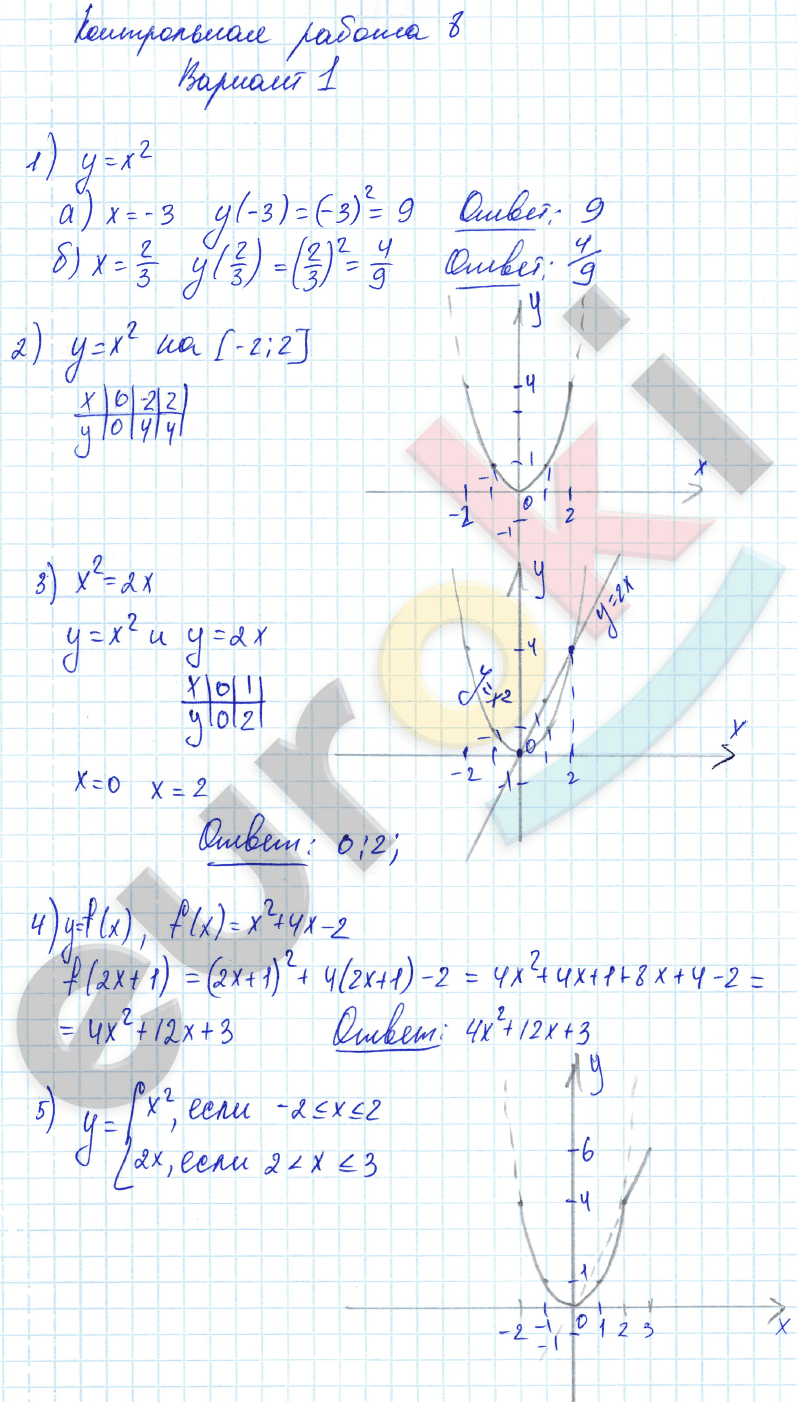 Контрольная работа 8
Вариант 1
1) y=x²
а) x=-3 y(-3)=(-3)²=9 Ответ: 9
б) x=2/3 y(2/3)=(2/3)²=4/9 Ответ: 4/9
2) y=x² на [-2;2]
x 0 -2 2
y 0 4 4
y
4
1
-2 -1 0 1 2 x
-1
3) x²=2x
y=x² и y=2x
x 0 1
y 0 2
x=0 x=2
Ответ: 0;2;
y
y=2x
4
y=x²
1
-2 -1 0 1 2 x
-1
4) y=f(x), f(x)=x²+4x-2
f(2x+1)=(2x+1)²+4(2x+1)-2=4x²+4x+1+8x+4-2=
=4x²+12x+3 Ответ: 4x²+12x+3
5) y={x², если -2≤x≤2
2x, если 2<x≤3
y
6
4
1
-2 -1 0 1 2 3 x
-1
euroki